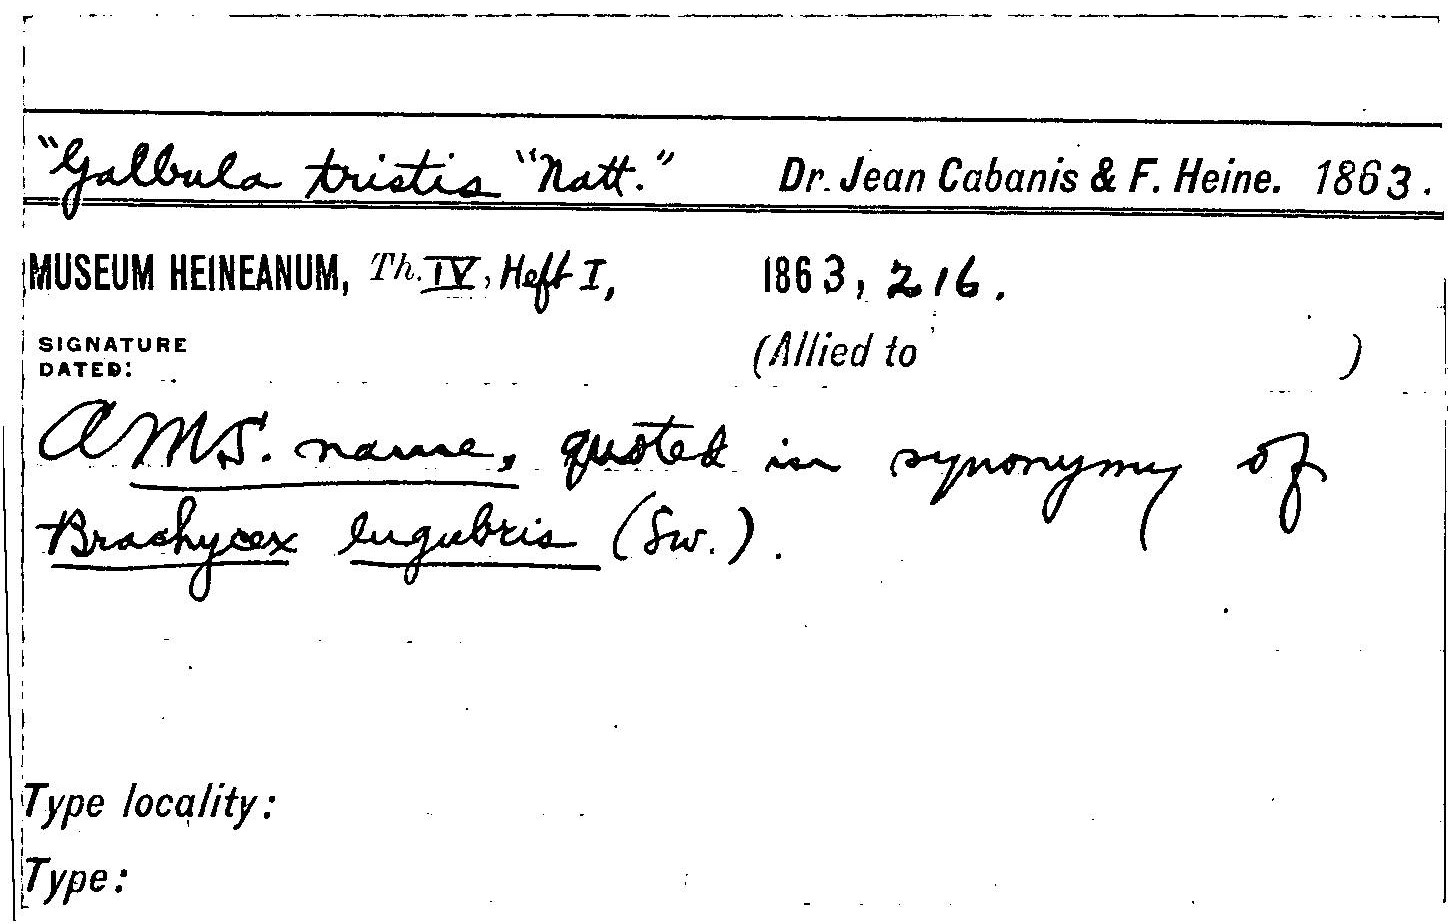 "Galbula tristis "Natt." Dr. Jean Cabanis & F. Heine. 1863.
MUSEUM HEINEANUM, Th. IV, Heft I, 1863, 216.
SIGNATURE
DATED:
(Allied to )
A MS. name, quoted in synonymy of
Brachycex lugubris (Sw.).
Type locality:
Type: